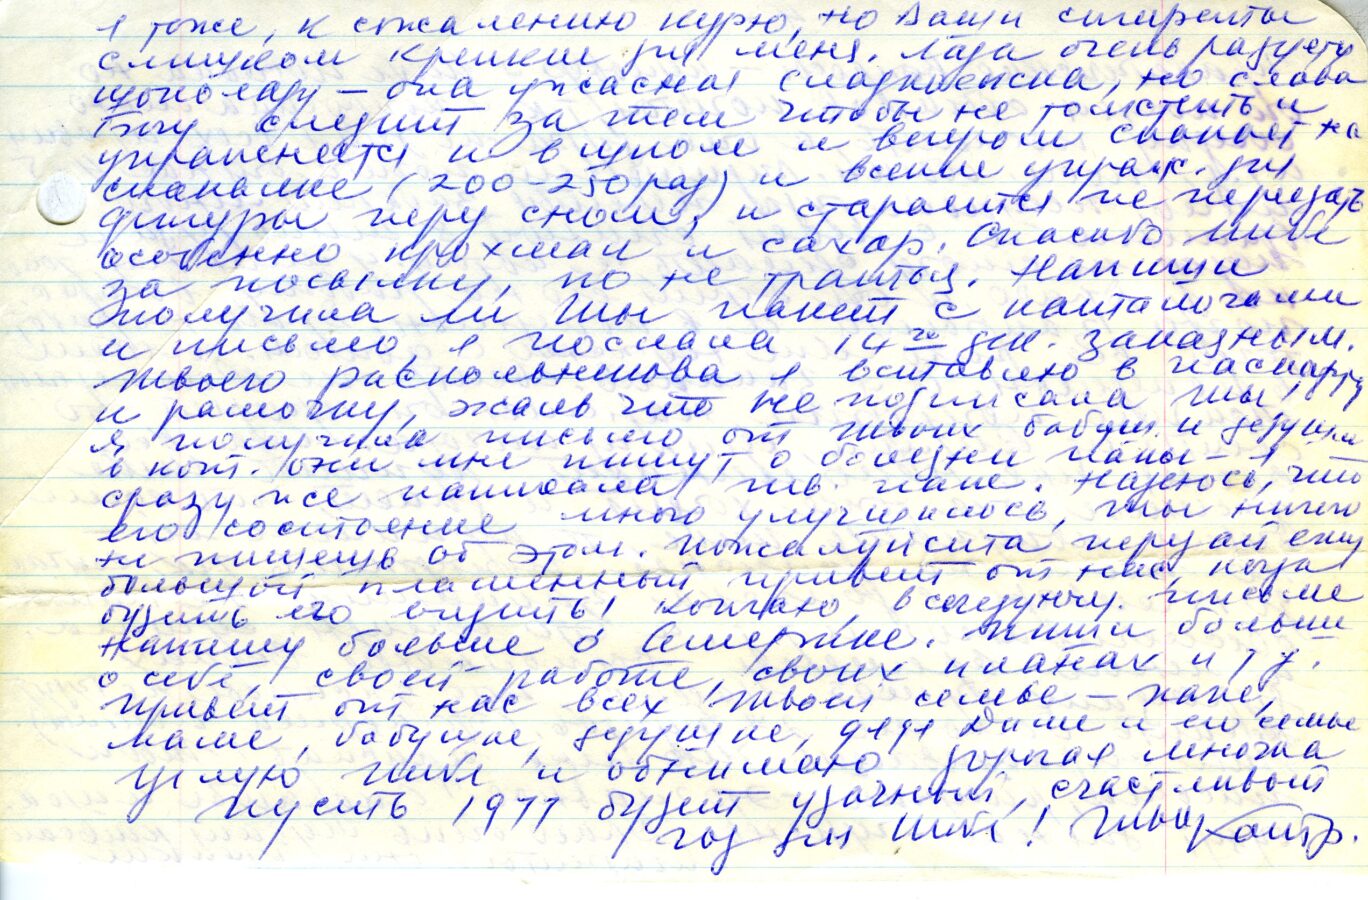 Я тоже, к сожалению курю, но Ваши сигареты
слишком крепкие для меня. Лада очень радуется
шоколаду – она ужасная сладкоежка, но слава
Богу следит за тем чтобы не толстеть и
упражняется и в и вечером скакает на
скакалке (200-250 раз) и всякие упраж. для
фигуры перед сном, и старается не переедать
особенно крахмал и сахар. Спасибо тебе
за посылку, но не траться. Напиши
получила ли ты пакет с
и письмо, я послала 14го дек. заказным.
Твоего Раскольникова я вставлю в паспарту
и рамочку, жаль что не подписала ты,
я получила письмо от твоих бабуш. и дедушки
в кот. они мне пишут о болезни папы – я
сразу же написала тв. папе. Надеюсь, что
его состояние много улучшилось, ты ничего
не пишешь об этом. Пожалуйста передай ему
большой пламенный привет от нас, когда
будешь его видеть! Кончаю, в следующ. письме
напишу больше о Америке. Пиши больше
о себе, своей работе, своих планах и т д.
Привет от нас всех твоей семье – папе,
маме, бабушке, дедушке, дяде Диме и его семье
Целую тебя и обнимаю дорогая множка
Пусть 1977 будет удачный, счастливый
год для тебя! Твоя